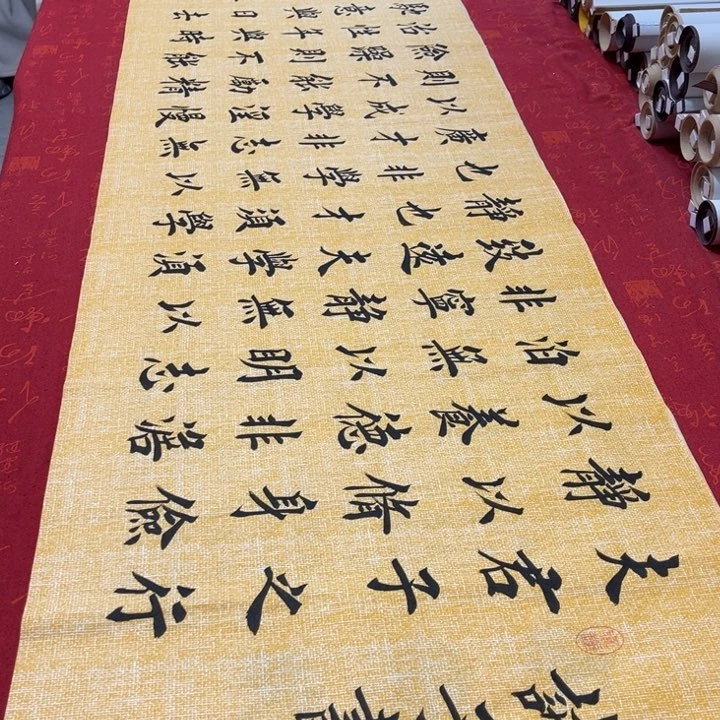 夫君子之行
靜以修身儉
以養德非澹
泊無以明志
非寧靜無以
致遠夫學須
靜也才須學
也非學無以
廣才非志無
以成學淫慢
則不能勵精
險躁則不能
冶性年與時
意與日去